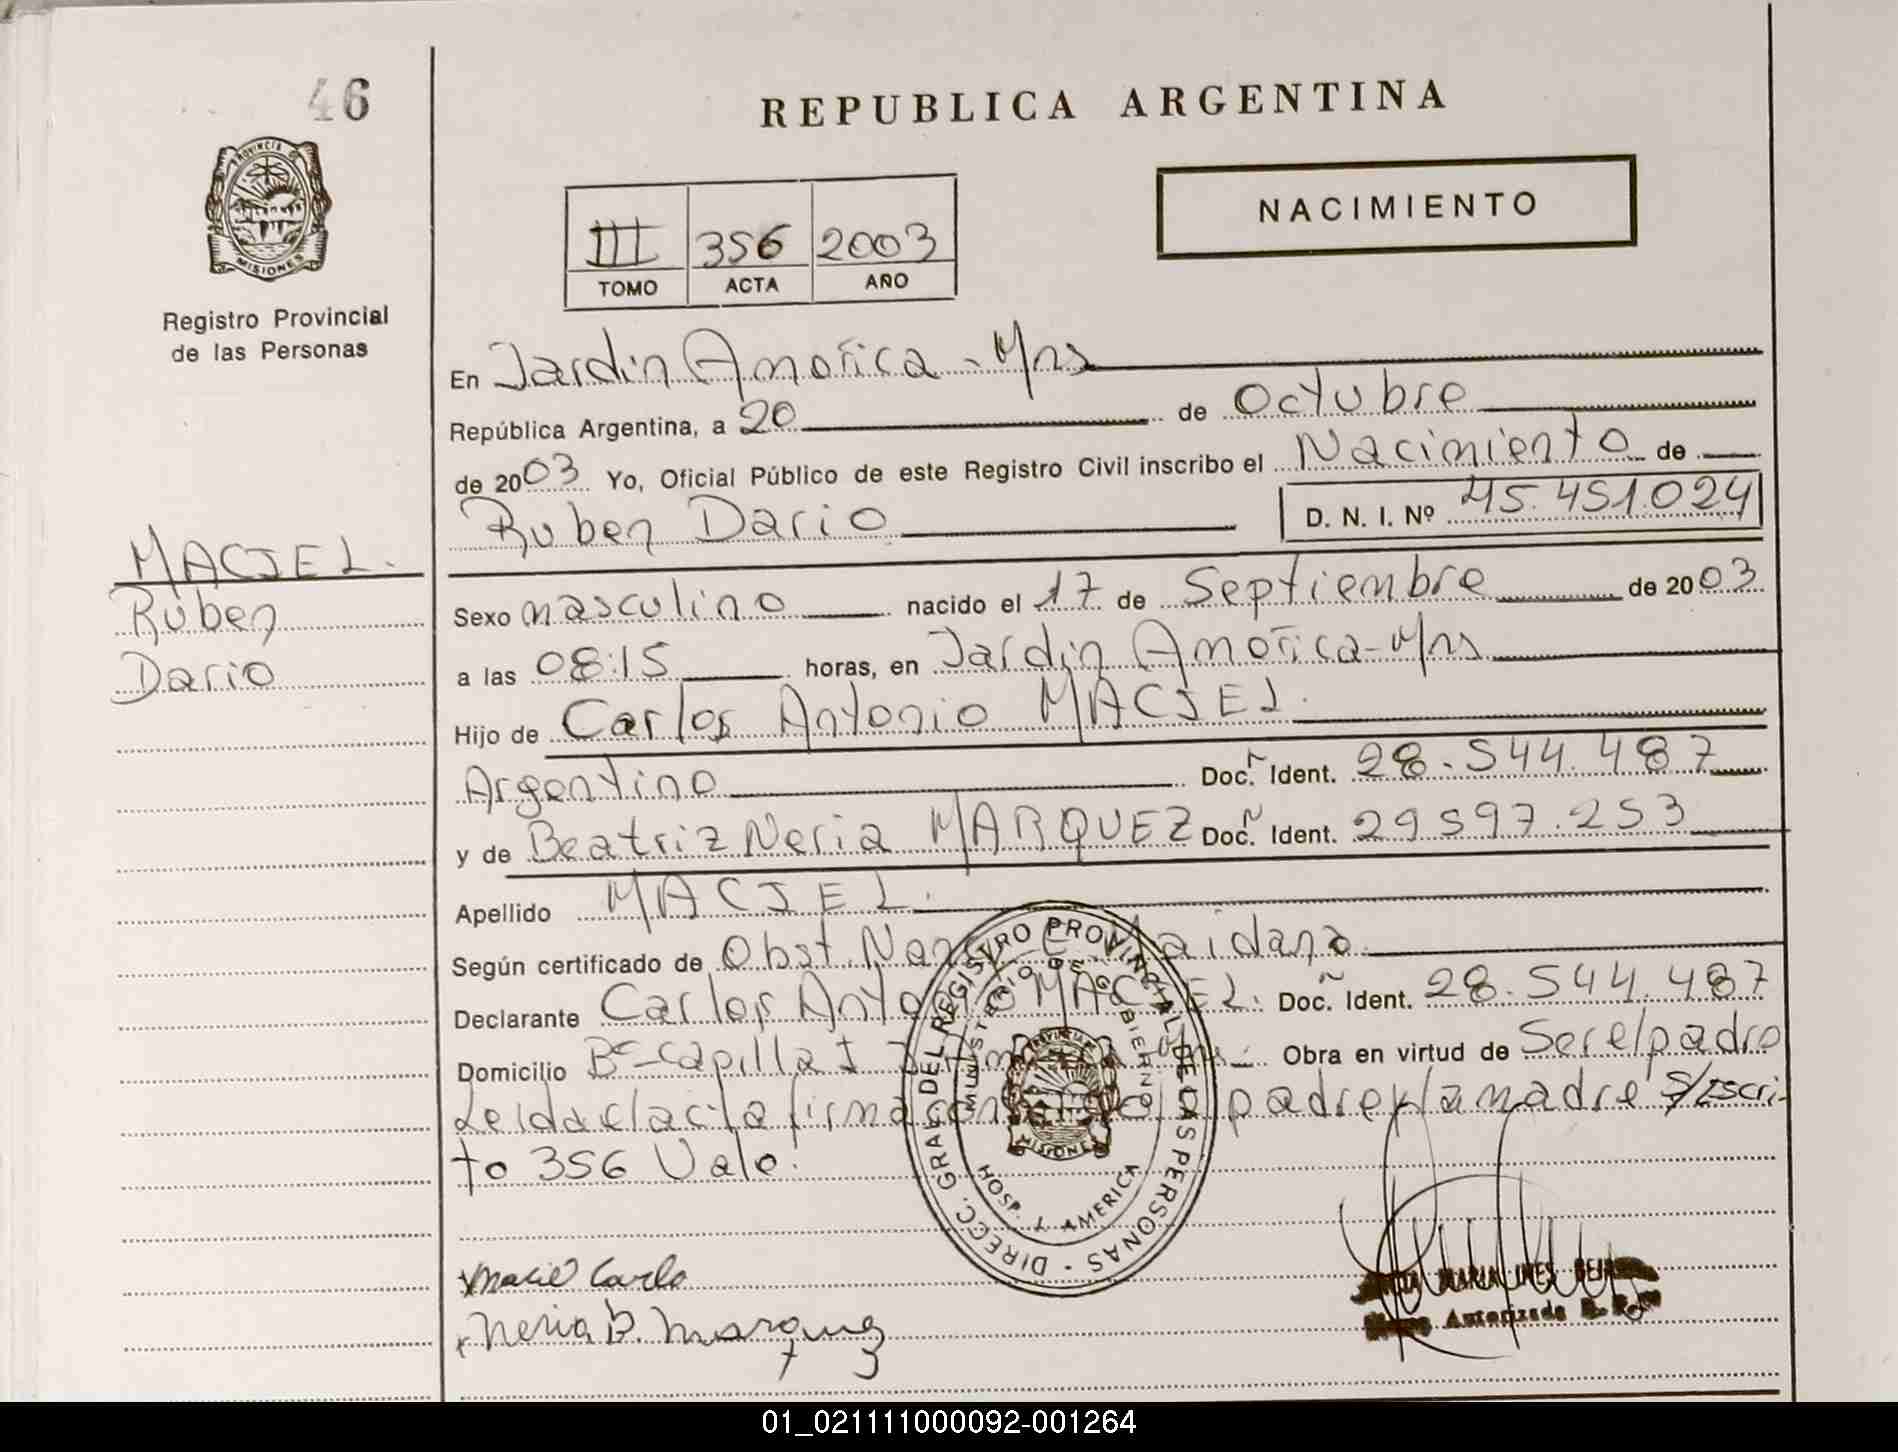 46
REPUBLICA ARGENTINA
PROVINCIA DE
MISIONES
Registro Provincial
de las Personas
NACIMIENTO
III 356 2003
TOMO ACTA AÑO
En Jardin America - Mns
República Argentina, a 20 de Octubre
de 2003 Yo, Oficial Público de este Registro Civil inscribo el Nacimiento de
Ruben Dario D. N. I. Nº 45.451.024
MACIEL.
Ruben
Dario
Sexo masculino nacido el 17 de Septiembre de 2003
a las 08:15 horas, en Jardin America - Mns
Hijo de Carlos Antonio MACIEL.
Argentino Doc. Ident. 28.544.487
y de Beatriz Neria MARQUEZ Doc. Ident. 29597.253
Apellido MACIEL.
Según certificado de Obst. Maidana
Declarante Carlos Antonio MACIEL. Doc. Ident. 28.544.487
Domicilio Bº Capilla I Obra en virtud de Ser el padre
Leida el acta firman el padre y la madre S/Escri-
to 356 Vale.
DIRECC. GRAL. DEL REGISTRO PROVINCIAL DE LAS PERSONAS
MINISTERIO DE GOBIERNO
PROVINCIA DE
MISIONES
HOSP. J. AMERICA
Maciel Carlo
Neria B. Marquez
MARIA INES
Autorizada
01_021111000092-001264